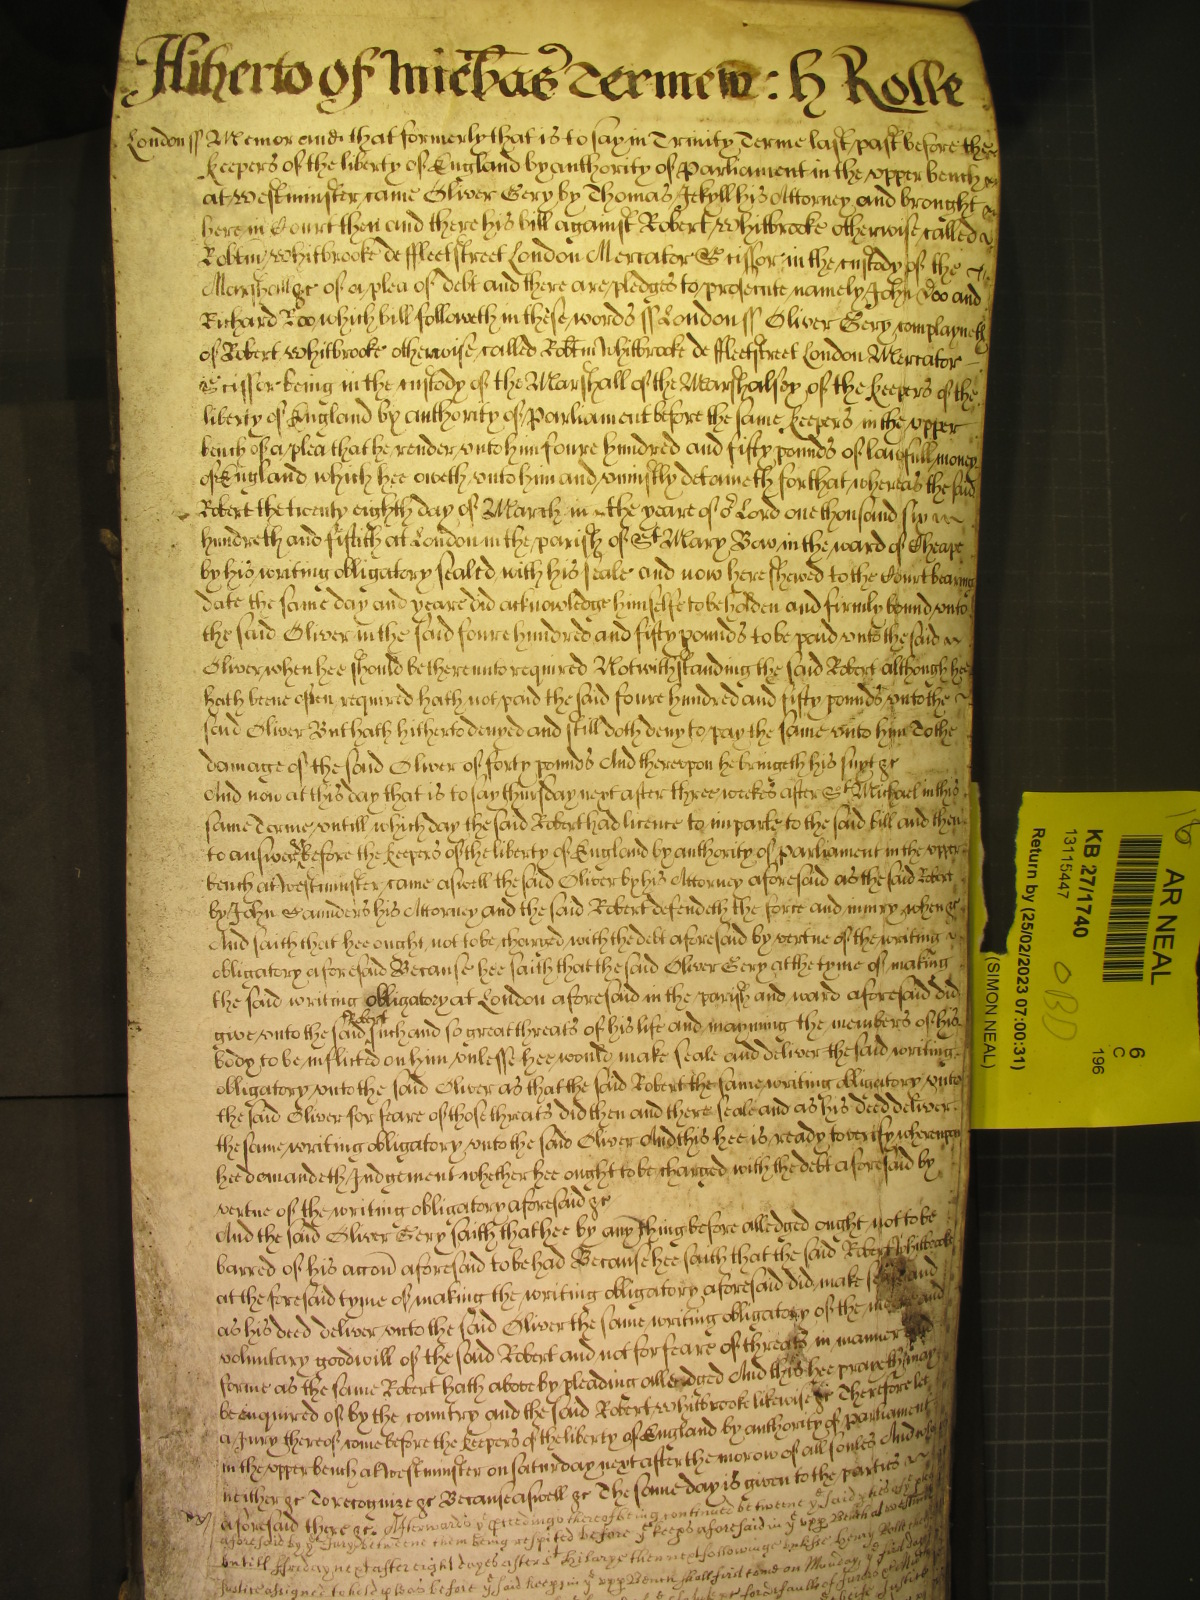 Hitherto of Michas Terme : H Rolle
London ss Memorand that formerly that is to say in Trinity Terme last past before the
keepers of the liberty of England by authority of Parliament in the upper bench
at Westminster came Oliver Gery by Thomas Jekyll his Attorney and brought
here in Court then and there his bill against Robert Whitbrooke otherwise called
Robtm Whitbrooke de ffleetstreet London Mercator Scissor in the custody of the
Marshall &c of a plea of debt and there are pledges to prosecute namely John Doo and
Richard Roo which bill followeth in these words ss London ss Oliver Gery complayneth
of Robert Whitbrooke otherwise called Robtm Whitbrooke de ffleetstreet London Mercator
Scissor being in the custody of the Marshall of the Marshalsey of the keepers of the
liberty of England by authority of Parliament before the same keepers in the upper
bench of a plea that he render unto him foure hundred and fifty pounds of lawfull money
of England which hee oweth unto him and uniustly detaineth for that whereas the said
Robert the twenty eighth day of March in the yeare of or Lord one thousand six
hundreth and fiftith at London in the parish of St Mary Bow in the ward of Cheape
by his writing obligatory sealed with his seale and now here shewed to the Court bearing
date the same day and yeare did acknowledge himselfe to be holden and firmly bound unto
the said Oliver in the said foure hundred and fifty pounds to be paid unto the said
Oliver when hee should be thereunto required Notwithstanding the said Robert although hee
hath beene often required hath not paid the said foure hundred and fifty pounds unto the
said Oliver But hath hitherto denyed and still doth deny to pay the same unto him To the
damage of the said Oliver of forty pounds And thereupon he bringeth his suyt &c
And now at this day that is to say thursday next after three weekes after St Michael in this
same Terme untill which day the said Robert had licence to imparle to the said bill and then
to answere before the keepers of the liberty of England by authority of Parliament in the upper
bench at Westminster came aswell the said Oliver by his Attorney aforesaid as the said Robert
by John Saunders his Attorney and the said Robert defendeth the force and iniury when &c
And saith that hee ought not to be charged with the debt aforesaid by vertue of the writing
obligatory aforesaid Because hee saith that the said Oliver Gery at the tyme of making
the said writing obligatory at London aforesaid in the parish and ward aforesaid did
give unto the said Robert such and so great threats of his life and mayming the members of his
body to be inflicted on him unlesse hee would make seale and deliver the said writing
obligatory unto the said Oliver as that the said Robert the same writing obligatory unto
the said Oliver for feare of those threats did then and there seale and as his deed deliver
the same writing obligatory unto the said Oliver And this hee is ready to verify whereupon
hee demandeth Judgement whether hee ought to be charged with the debt aforesaid by
vertue of the writing obligatory aforesaid &c
And the said Oliver Gery saith that hee by any thing before alledged ought not to be
barred of his accon aforesaid to be had Because hee saith that the said Robert Whitbrooke
at the foresaid tyme of making the writing obligatory aforesaid did make seale and
as his deed deliver unto the said Oliver the same writing obligatory of the meere and
voluntary goodwill of the said Robert and not for feare of threats in manner and
forme as the same Robert hath above by pleading alledged And this hee prayeth may
be enquired of by the country and the said Robert Whitbrooke likewise &c Therefore let
a Jury thereof come before the keepers of the liberty of England by authority of Parliament
in the upper bench at Westminster on saturday next after the morow of all soules And who
neither &c To recognize &c Because aswell &c The same day is given to the parties
aforesaid there &c. Afterwards ye pceedings thereof being continued betweene ye said pties
aforesaid by ye Jury betweene them being respited before ye keeps aforesaid in ye upp Bench at
untill ffriday next after eight dayes after St Hilary then next followinge unlesse Henry Rolle
Justice assigned to hold pleas before ye said keeps in ye upp Bench shall first come on Munday ye
18
AR NEAL
KB 27/1740
13115447
Return by (25/02/2023 07:00:31)
(SIMON NEAL)
OBD
6
C
196